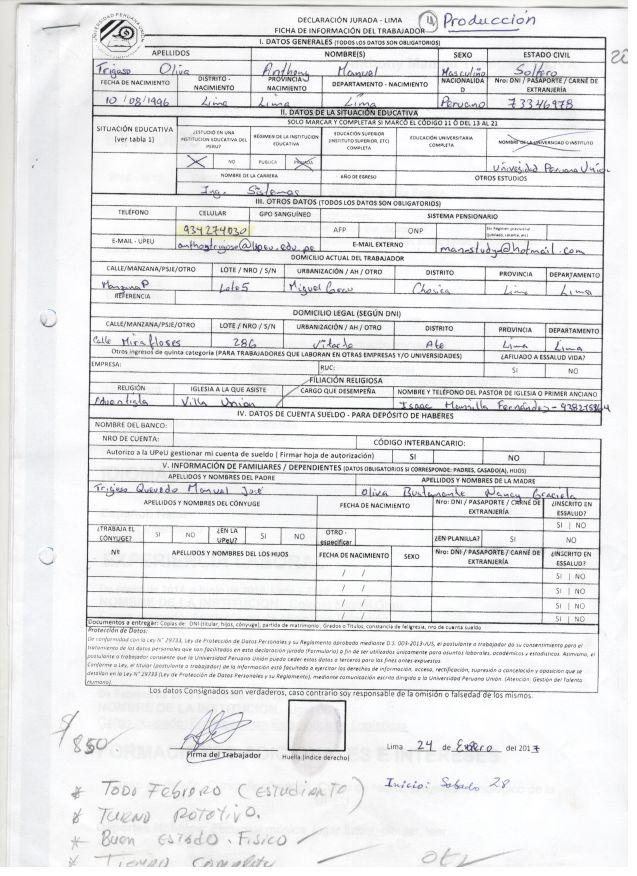 DECLARACIÓN JURADA - LIMA
④ Producción
FICHA DE INFORMACIÓN DEL TRABAJADOR
I. DATOS GENERALES (TODOS LOS DATOS SON OBLIGATORIOS)
APELLIDOS NOMBRE(S) SEXO ESTADO CIVIL
Trigoso Oliva Anthony Manuel Masculino Soltero
FECHA DE NACIMIENTO DISTRITO - NACIMIENTO PROVINCIA - NACIMIENTO DEPARTAMENTO - NACIMIENTO NACIONALIDAD Nro: DNI / PASAPORTE / CARNÉ DE EXTRANJERÍA
10/08/1996 Lima Lima Lima Peruano 73346978
II. DATOS DE LA SITUACIÓN EDUCATIVA
SOLO MARCAR Y COMPLETAR SI MARCÓ EL CÓDIGO 11 Ó DEL 13 AL 21
SITUACIÓN EDUCATIVA (ver tabla 1) ¿ESTUDIÓ EN UNA INSTITUCION EDUCATIVA DEL PERU? RÉGIMEN DE LA INSTITUCIÓN EDUCATIVA EDUCACIÓN SUPERIOR (INSTITUTO SUPERIOR, ETC) COMPLETA EDUCACIÓN UNIVERSITARIA COMPLETA NOMBRE DE LA UNIVERSIDAD O INSTITUTO
NO PUBLICA PRIVADA Universidad Peruana Union
NOMBRE DE LA CARRERA AÑO DE EGRESO OTROS ESTUDIOS
Ing. Sistemas
III. OTROS DATOS (TODOS LOS DATOS SON OBLIGATORIOS)
TELÉFONO CELULAR GPO SANGUÍNEO SISTEMA PENSIONARIO
934274030 AFP ONP
E-MAIL - UPEU anthonytrigoso@upeu.edu.pe E-MAIL EXTERNO manustudy@hotmail.com
DOMICILIO ACTUAL DEL TRABAJADOR
CALLE/MANZANA/PSJE/OTRO LOTE / NRO / S/N URBANIZACIÓN / AH / OTRO DISTRITO PROVINCIA DEPARTAMENTO
Manzana P Lote 5 Miguel Grau Chosica Lima Lima
REFERENCIA
DOMICILIO LEGAL (SEGÚN DNI)
CALLE/MANZANA/PSJE/OTRO LOTE / NRO / S/N URBANIZACIÓN / AH / OTRO DISTRITO PROVINCIA DEPARTAMENTO
Calle Miraflores 286 Vitarte Ate Lima Lima
Otros ingresos de quinta categoría (PARA TRABAJADORES QUE LABORAN EN OTRAS EMPRESAS Y/O UNIVERSIDADES) ¿AFILIADO A ESSALUD VIDA?
EMPRESA: RUC: SI NO
FILIACIÓN RELIGIOSA
RELIGIÓN IGLESIA A LA QUE ASISTE CARGO QUE DESEMPEÑA NOMBRE Y TELÉFONO DEL PASTOR DE IGLESIA O PRIMER ANCIANO
Adventista Villa Union Isaac Mansilla Fernández -
IV. DATOS DE CUENTA SUELDO - PARA DEPÓSITO DE HABERES
NOMBRE DEL BANCO:
NRO DE CUENTA: CÓDIGO INTERBANCARIO:
Autorizo a la UPeU gestionar mi cuenta de sueldo ( Firmar hoja de autorización) SI NO
V. INFORMACIÓN DE FAMILIARES / DEPENDIENTES (DATOS OBLIGATORIOS SI CORRESPONDE: PADRES, CASADO(A), HIJOS)
APELLIDOS Y NOMBRES DEL PADRE APELLIDOS Y NOMBRES DE LA MADRE
Trigoso Quevedo Manuel José Oliva Bustamante Nancy Graciela
APELLIDOS Y NOMBRES DEL CÓNYUGE FECHA DE NACIMIENTO Nro: DNI / PASAPORTE / CARNÉ DE EXTRANJERÍA ¿INSCRITO EN ESSALUD?
SI NO
¿TRABAJA EL CÓNYUGE? SI NO ¿EN LA UPeU? SI NO OTRO - especificar ¿EN PLANILLA? SI NO
Nº APELLIDOS Y NOMBRES DE LOS HIJOS FECHA DE NACIMIENTO SEXO Nro: DNI / PASAPORTE / CARNÉ DE EXTRANJERÍA ¿INSCRITO EN ESSALUD?
/ / SI NO
/ / SI NO
/ / SI NO
/ / SI NO
Documentos a entregar: Copias de: DNI (titular, hijos, cónyuge), partida de matrimonio, Grados o Títulos, constancia de feligresía, nro de cuenta sueldo
Protección de Datos:
De conformidad con la Ley N° 29733, Ley de Protección de Datos Personales y su Reglamento aprobado mediante D.S. 003-2013-JUS, el postulante o trabajador da su consentimiento para el
tratamiento de los datos personales que son facilitados en esta declaración jurada (Formulario) a fin de ser utilizados únicamente para asuntos laborales, académicos y estadísticos. Asimismo, el
postulante o trabajador consiente que la Universidad Peruana Unión pueda ceder estos datos a terceros para los fines antes expuestos
Conforme a Ley, el titular (postulante o trabajador) de la información está facultado a ejercitar los derechos de información, acceso, rectificación, supresión o cancelación y oposición que se
detallan en la Ley N° 29733 (Ley de Protección de Datos Personales y su Reglamento), mediante comunicación escrita dirigida a la Universidad Peruana Unión. (Atención: Gestión del Talento
Humano).
Los datos Consignados son verdaderos, caso contrario soy responsable de la omisión o falsedad de los mismos.
S/ 850
Firma del Trabajador Huella (índice derecho) Lima 24 de Enero del 2017
Inicio: Sabado 28
* TODO FEBRERO (ESTUDIANTE)
* TURNO ROTATIVO.
* BUEN ESTADO FISICO
* TIEMPO COMPLETO